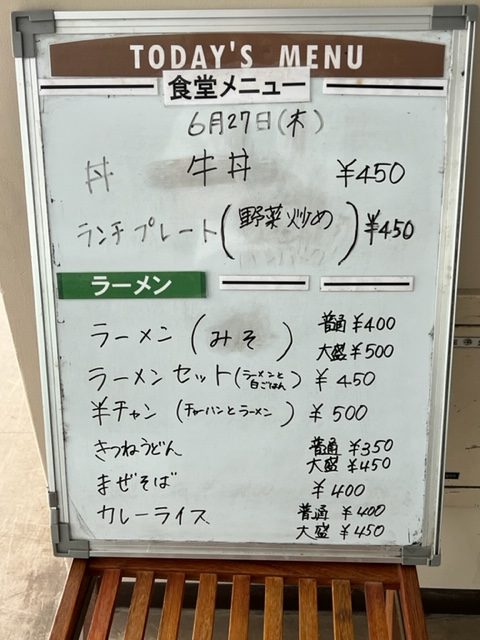 TODAY'S MENU
食堂メニュー
6月27日(木)
丼 牛丼 ¥450
ランチプレート(野菜炒め) ¥450
ラーメン
ラーメン(みそ) 普通 ¥400
大盛 ¥500
ラーメンセット(ラーメンと白ごはん) ¥450
半チャン(チャーハンとラーメン) ¥500
きつねうどん 普通 ¥350
大盛 ¥450
まぜそば ¥400
カレーライス 普通 ¥400
大盛 ¥450